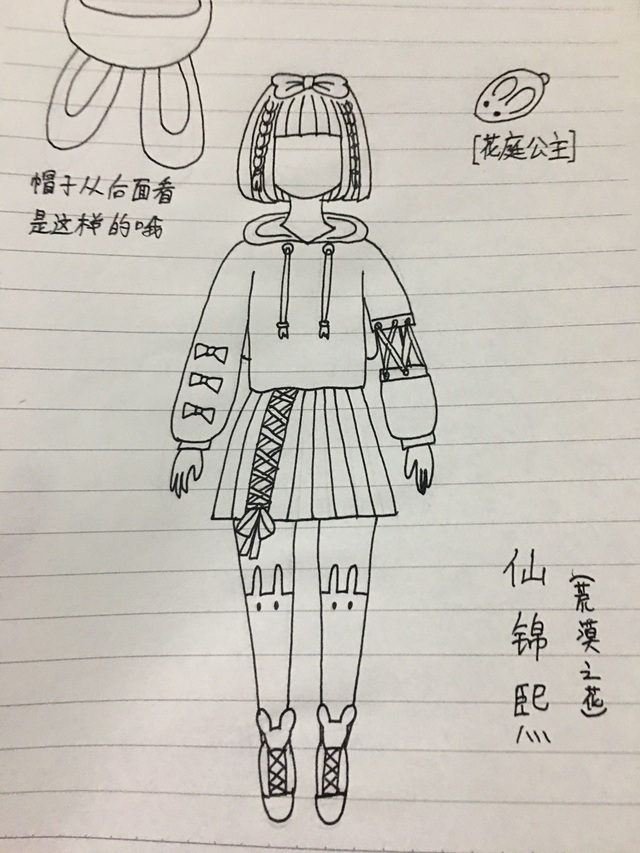 帽子从后面看
是这样的哦
[花庭公主]
仙锦熙
(荒漠之花)